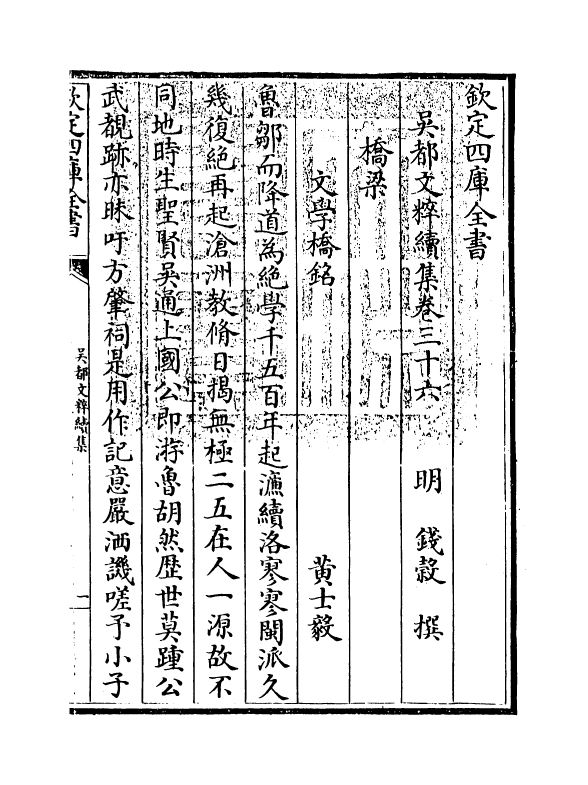 欽定四庫全書
吳都文粹續集卷三十六
明 錢穀 撰
橋梁
文學橋銘
黄士毅
魯鄒而降道為絶學千五百年起濂續洛寥寥閩派久
幾復絶再起滄洲教脩日揭無極二五在人一源故不
同地時生聖賢吳通上國公即游魯胡然歴世莫踵公
武覩跡亦昧吁方肇祠是用作記意嚴洒譏嗟予小子
欽定四庫全書
吳都文粹續集
一